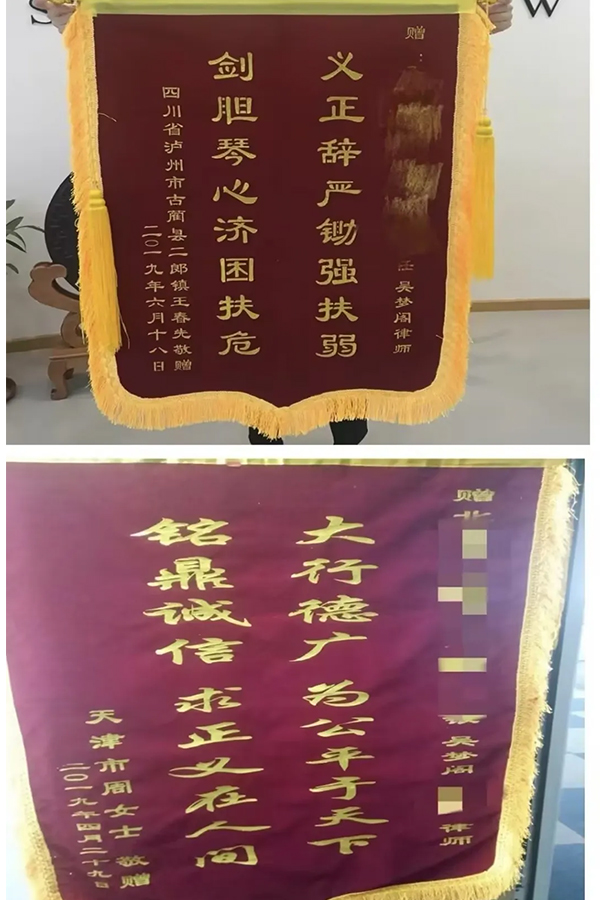 S W
赠：
任 吴梦阁律师
义正辞严锄强扶弱
剑胆琴心济困扶危
四川省泸州市古蔺县二郎镇王春先敬赠
二〇一九年六月十八日
赠北
吴梦阁 律师
大行德广 为公平于天下
铭鼎诚信 求正义在人间
天津市周女士 敬赠
二〇一九年四月二十九日